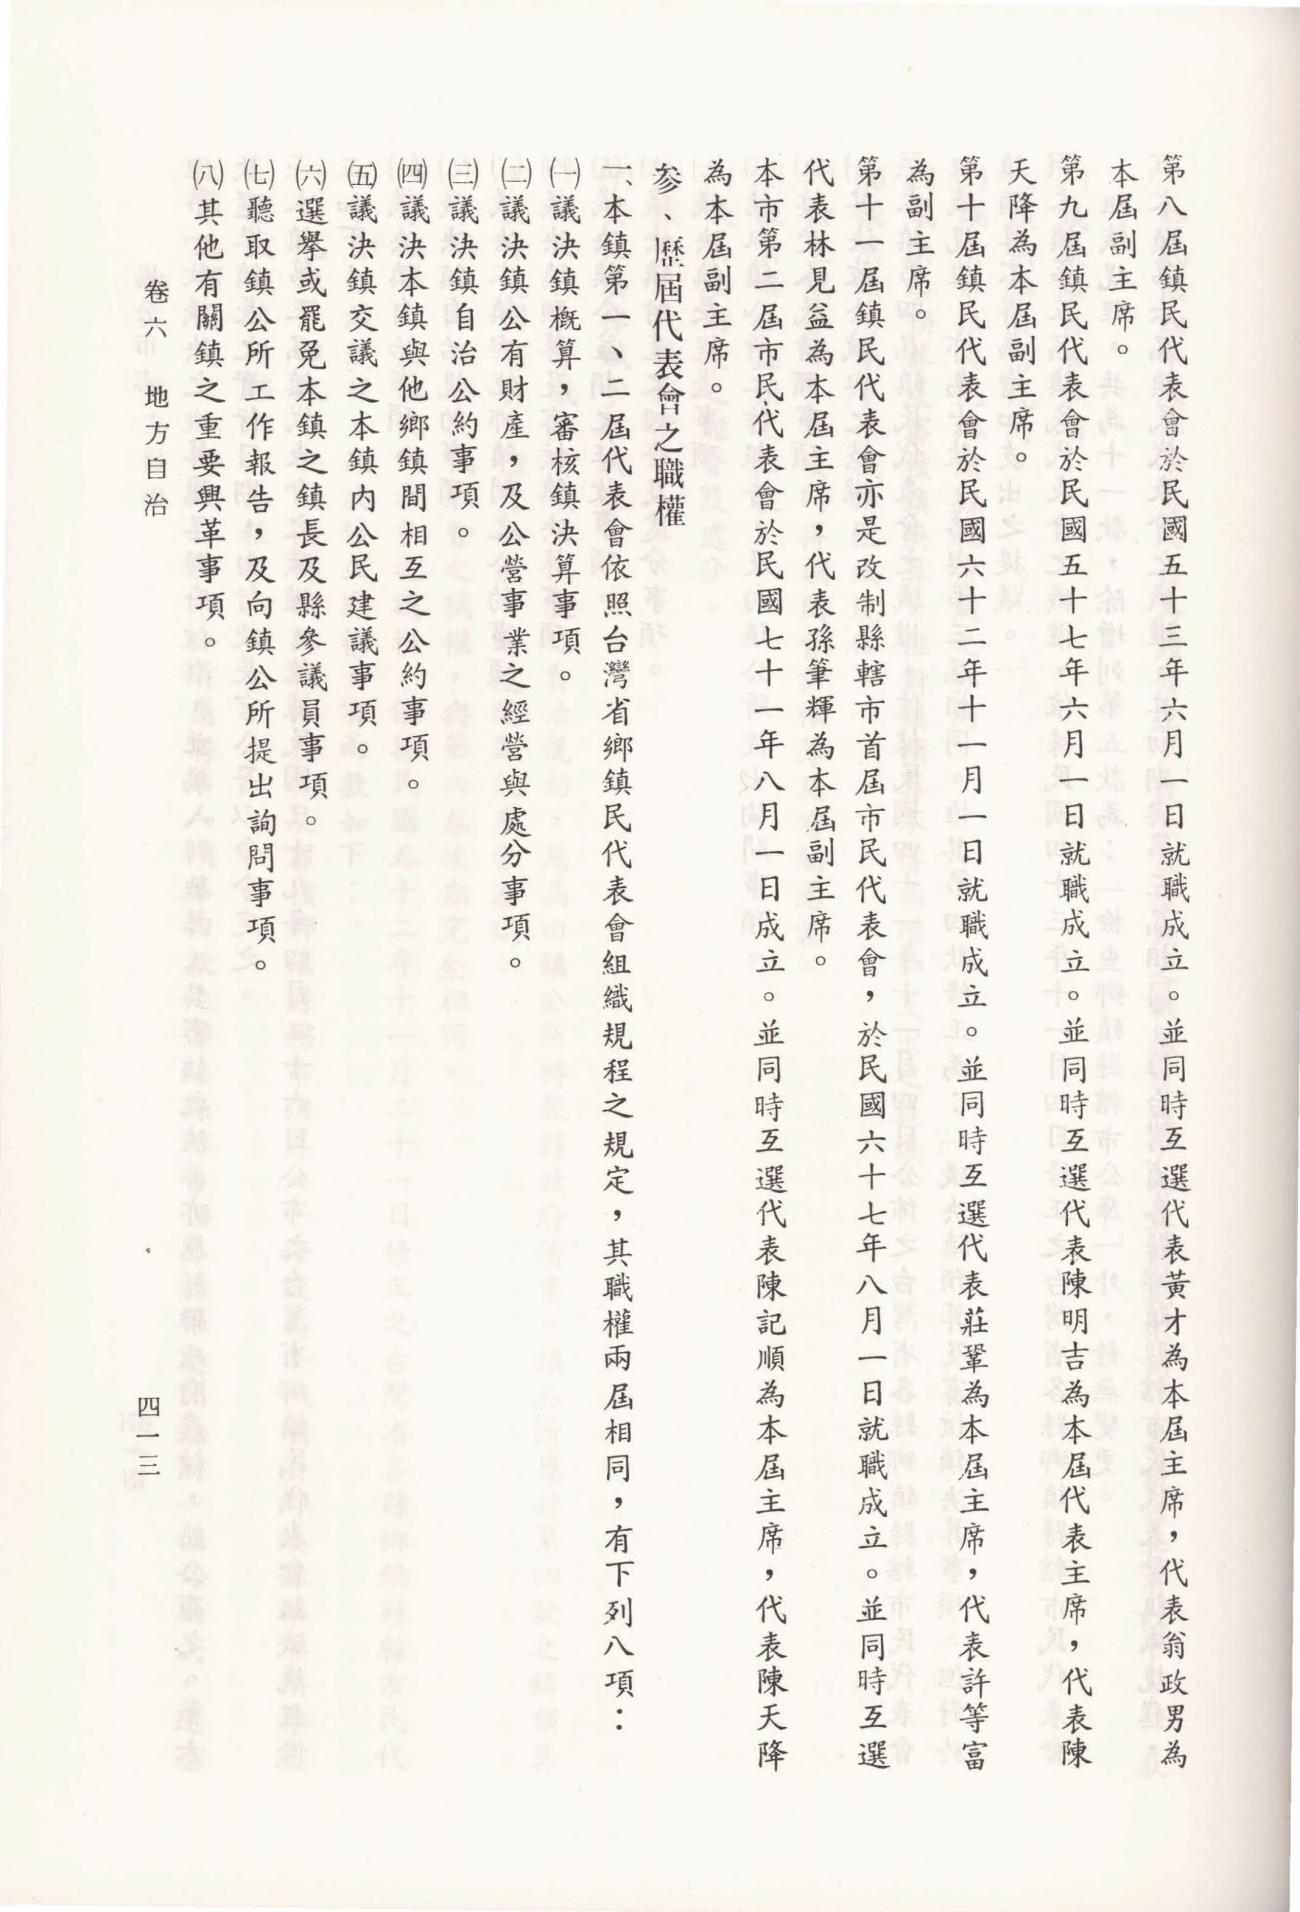 第八屆鎮民代表會於民國五十三年六月一日就職成立。並同時互選代表黃才為本屆主席，代表翁政男為
本屆副主席。
第九屆鎮民代表會於民國五十七年六月一日就職成立。並同時互選代表陳明吉為本屆代表主席，代表陳
天降為本屆副主席。
第十屆鎮民代表會於民國六十二年十一月一日就職成立。並同時互選代表莊鞏為本屆主席，代表許等富
為副主席。
第十一屆鎮民代表會亦是改制縣轄市首屆市民代表會，於民國六十七年八月一日就職成立。並同時互選
代表林見益為本屆主席，代表孫筆輝為本屆副主席。
本市第二屆市民代表會於民國七十一年八月一日成立。並同時互選代表陳記順為本屆主席，代表陳天降
為本屆副主席。
參、歷屆代表會之職權
一、本鎮第一、二屆代表會依照台灣省鄉鎮民代表會組織規程之規定，其職權兩屆相同，有下列八項：
㈠議決鎮概算，審核鎮決算事項。
㈡議決鎮公有財產，及公營事業之經營與處分事項。
㈢議決鎮自治公約事項。
㈣議決本鎮與他鄉鎮間相互之公約事項。
㈤議決鎮交議之本鎮內公民建議事項。
㈥選舉或罷免本鎮之鎮長及縣參議員事項。
㈦聽取鎮公所工作報告，及向鎮公所提出詢問事項。
㈧其他有關鎮之重要興革事項。
卷六 地方自治
四一三